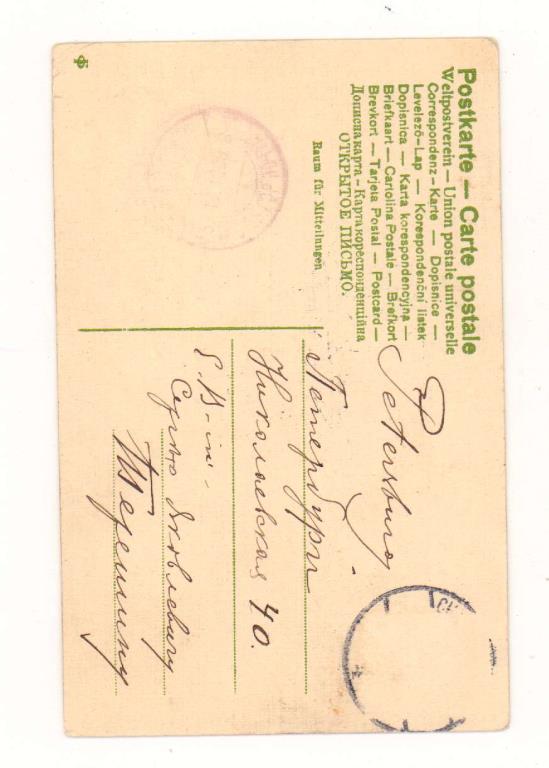 Postkarte — Carte postale
Weltpostverein — Union postale universelle
Correspondenz-Karte — Dopisnice —
Levelező-Lap — Korespondenční lístek
Dopisnica — Karta korespondencyjna —
Briefkaart — Cartolina Postale — Brefkort
Brevkort — Tarjeta Postal — Postcard —
Дописна карта — Карта кореспонденційна
ОТКРЫТОЕ ПИСЬМО.
Raum für Mitteilungen
Petersburg
Петербургъ
Николаевская 40.
Е. В-iю
Сергѣю Яковлевичу